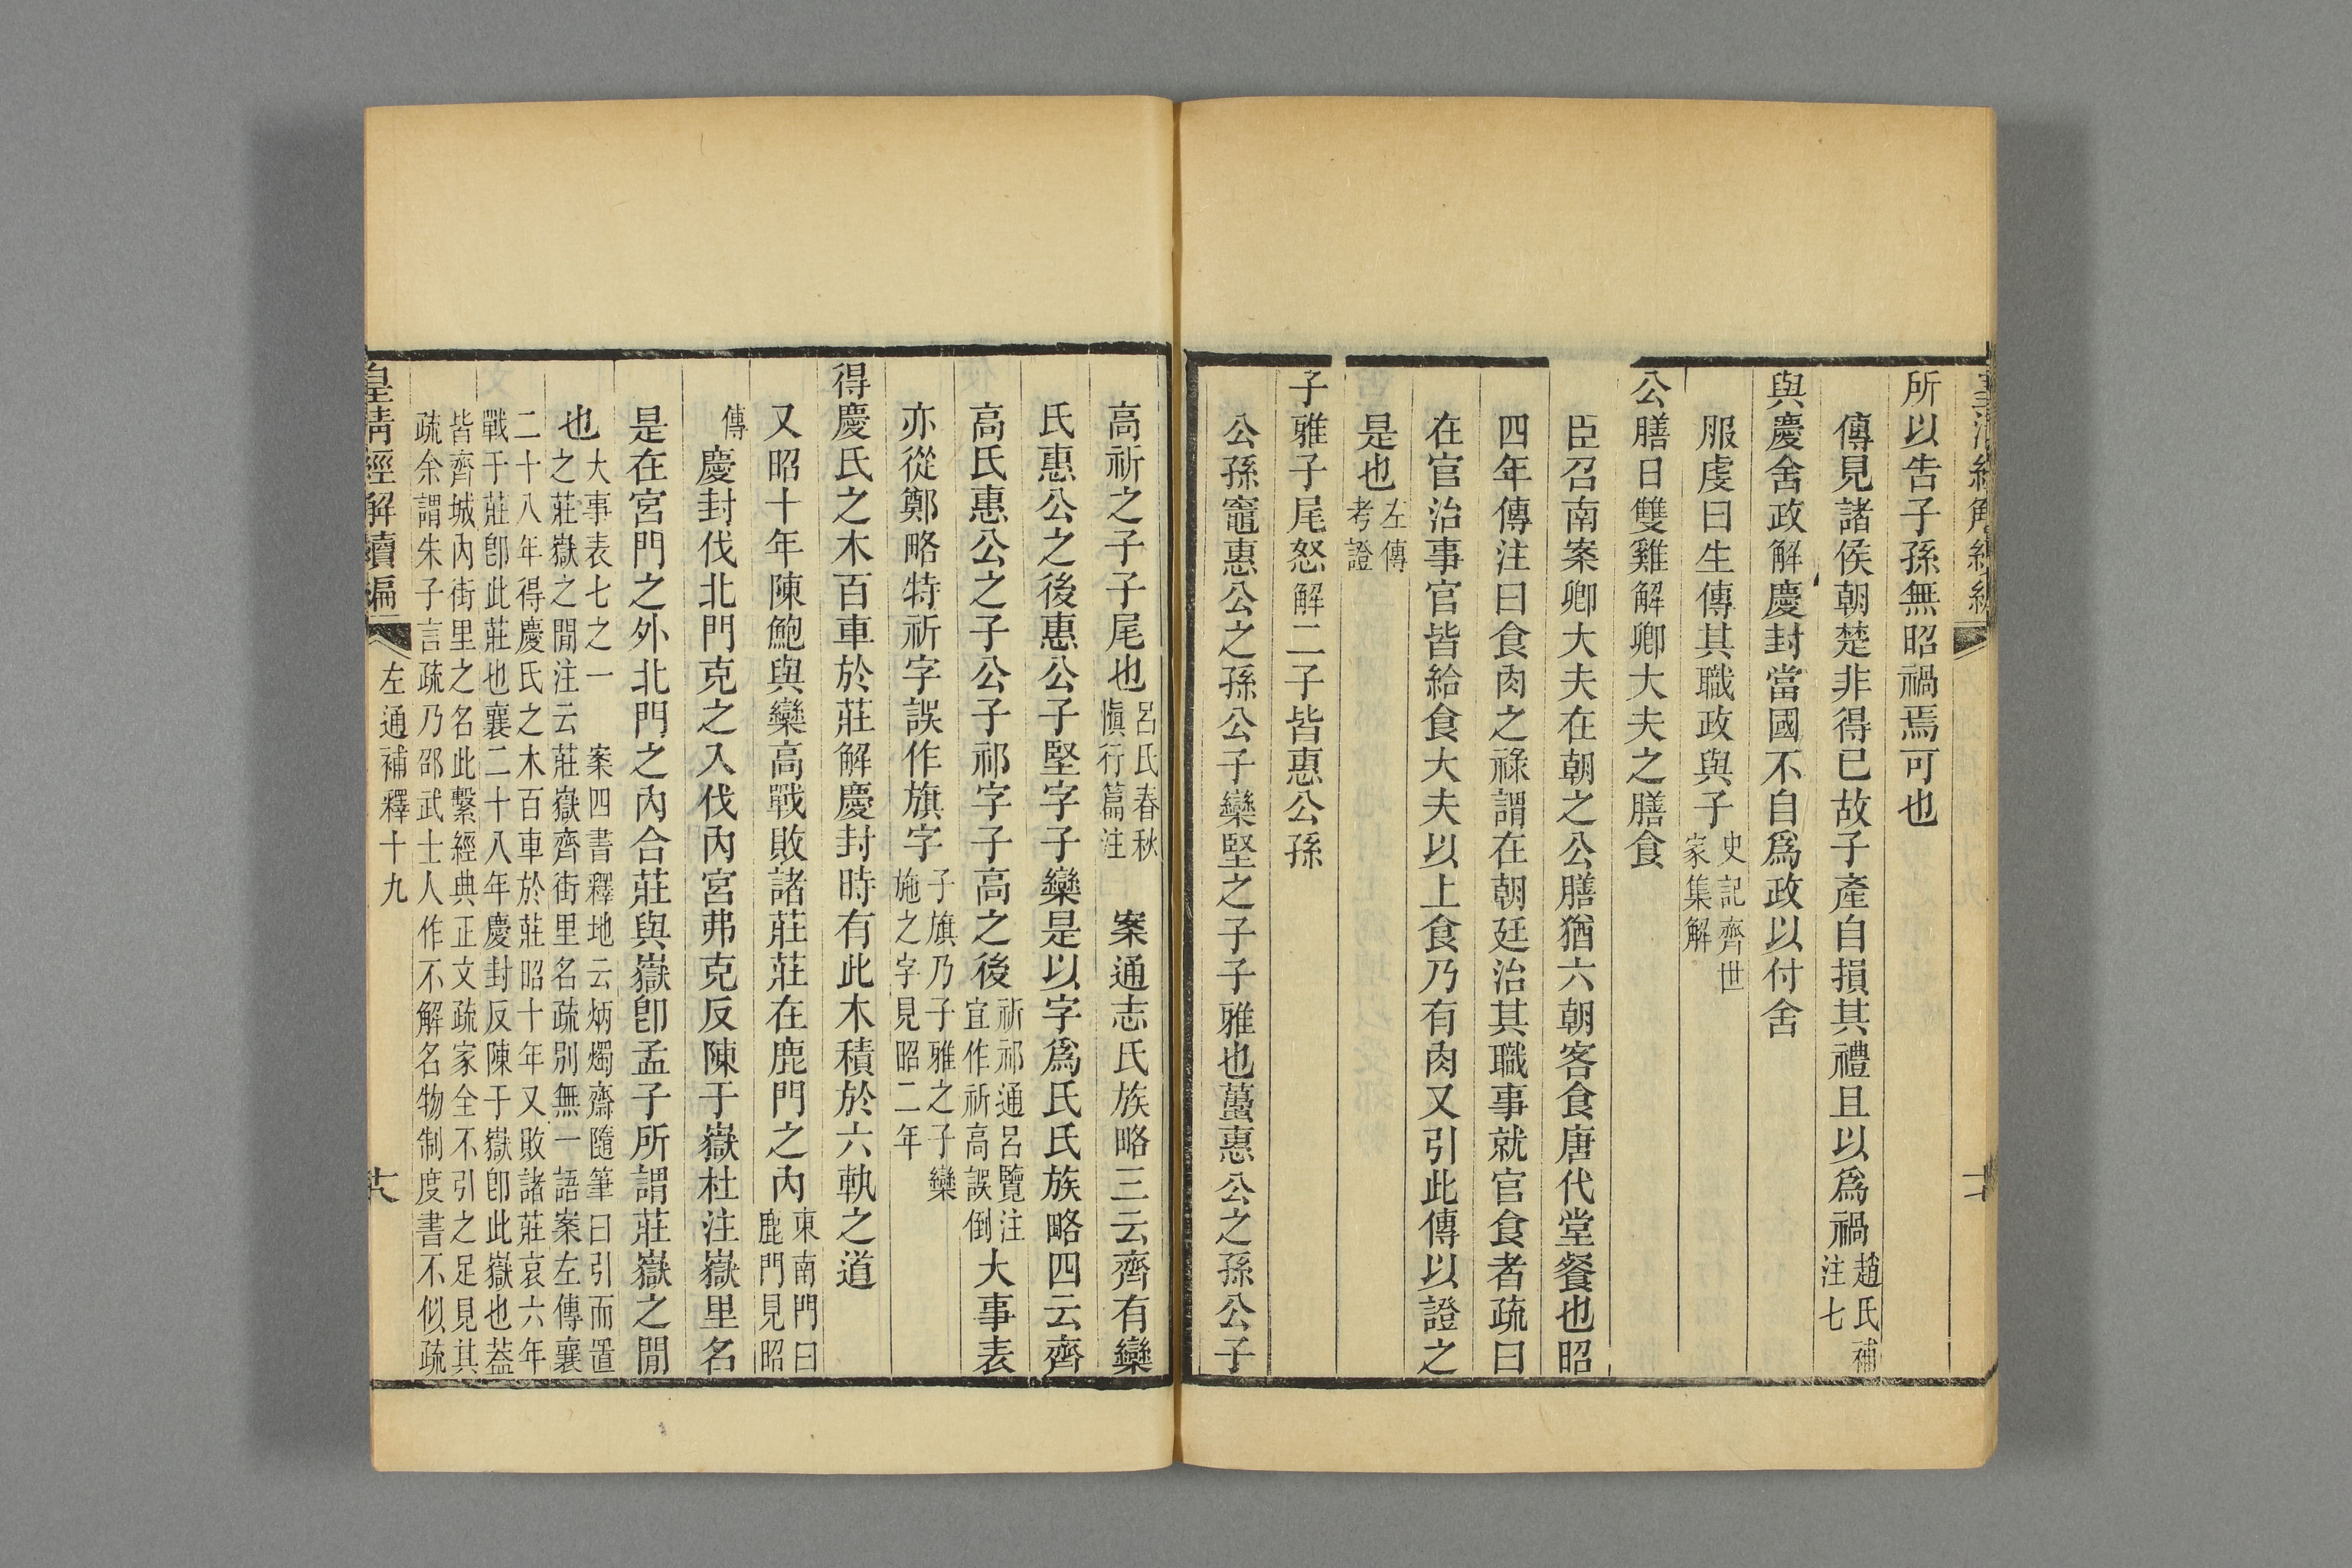 所以告子孫無昭禍焉可也
傳見諸侯朝楚非得已故子產自損其禮且以爲禍趙氏補注七
與慶舍政解慶封當國不自爲政以付舍
服虔曰生傳其職政與子史記齊世家集解
公膳日雙雞解卿大夫之膳食
臣召南案卿大夫在朝之公膳猶六朝客食唐代堂餐也昭
四年傳注曰食肉之祿謂在朝廷治其職事就官食者疏曰
在官治事官皆給食大夫以上食乃有肉又引此傳以證之
是也左傳考證
子雅子尾怒解二子皆惠公孫
公孫竈惠公之孫公子欒堅之子子雅也蠆惠公之孫公子
高祈之子子尾也呂氏春秋愼行篇注　案通志氏族略三云齊有欒
氏惠公之後惠公子堅字子欒是以字爲氏氏族略四云齊
高氏惠公之子公子祁字子高之後祈祁通呂覽注宜作祈高誤倒大事表
亦從鄭略特祈字誤作旗字子旗乃子雅之子欒施之字見昭二年
得慶氏之木百車於莊解慶封時有此木積於六軌之道
又昭十年陳鮑與欒高戰敗諸莊莊在鹿門之內東南門曰鹿門見昭
傳慶封伐北門克之入伐內宮弗克反陳于嶽杜注嶽里名
是在宮門之外北門之內合莊與嶽卽孟子所謂莊嶽之閒
也大事表七之一　案四書釋地云炳燭齋隨筆曰引而置之莊嶽之閒注云莊嶽齊街里名疏別無一語案左傳襄
二十八年得慶氏之木百車於莊昭十年又敗諸莊哀六年戰于莊卽此莊也襄二十八年慶封反陳于嶽卽此嶽也葢
皆齊城內街里之名此繫經典正文疏家全不引之足見其疏余謂朱子言疏乃邵武士人作不解名物制度書不似疏
皇清經解續編
左通補釋十九